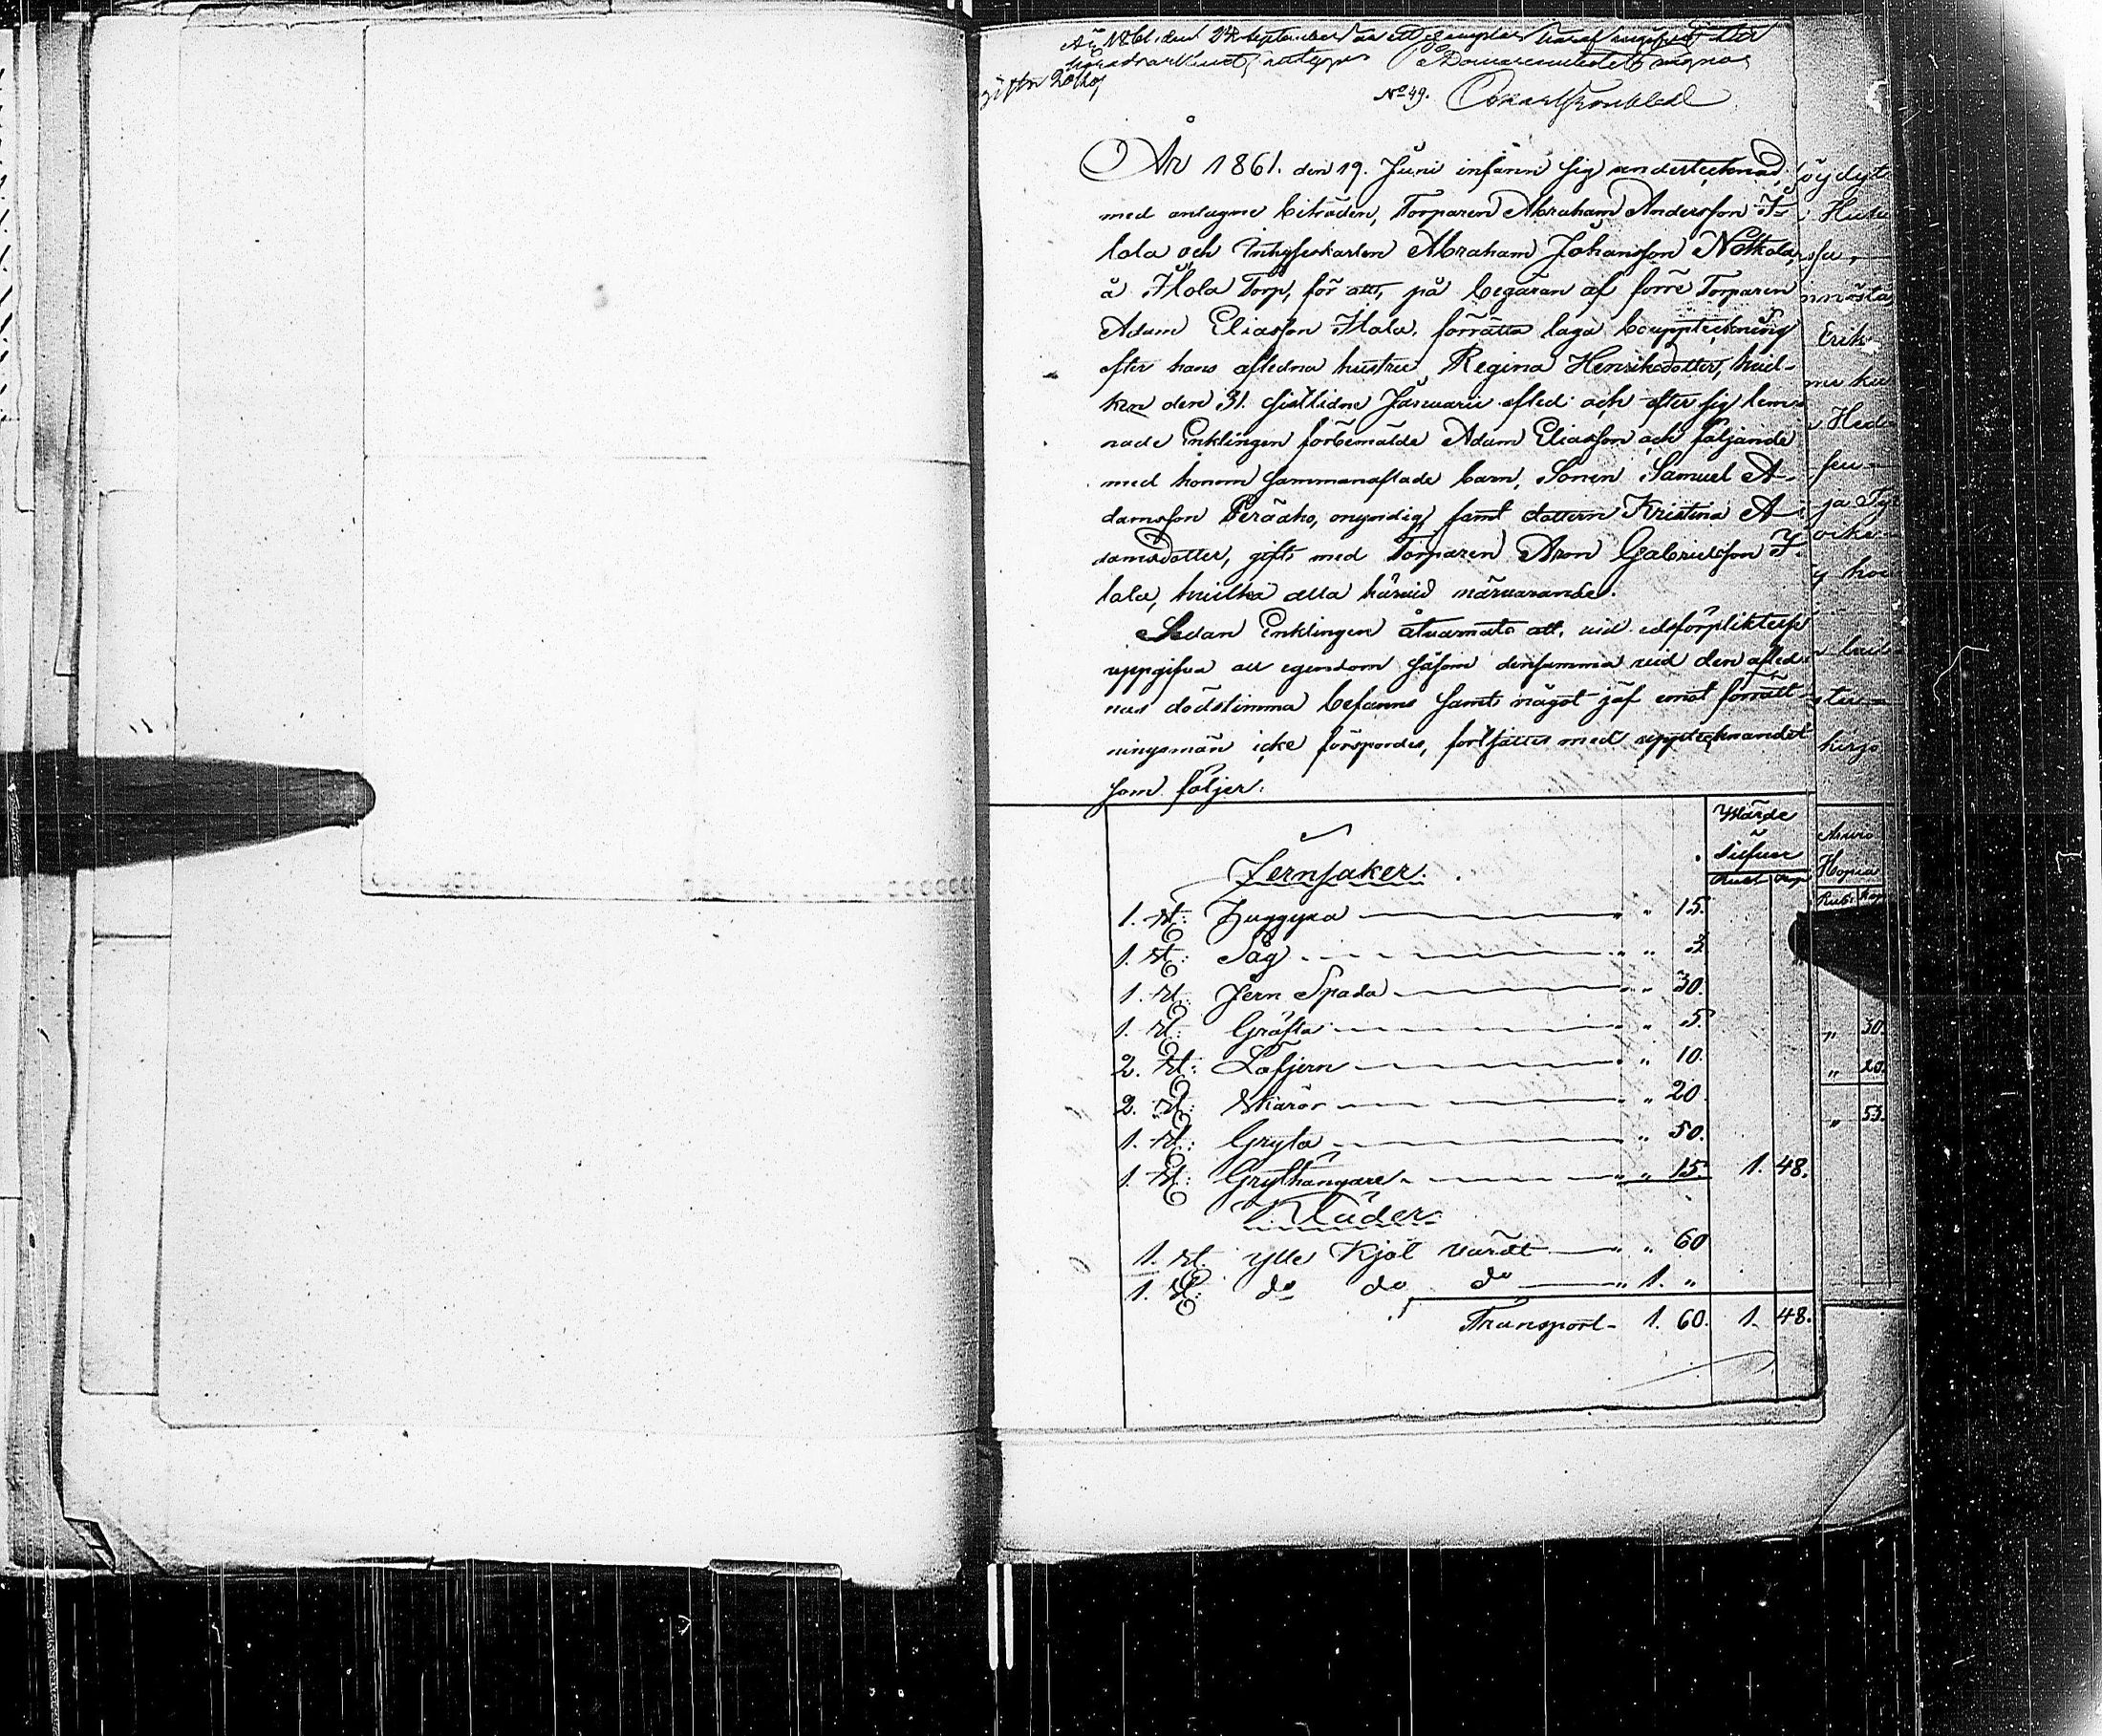 År 1861 den 24 September är ett exemplar häraf
häradsarkivet, intygar å Domareembetets wägnar
No 49.
År 1861. den 19. Juni infann sig undertecknad,
med antagne biträden, Torparen Abraham Andersson I-
lola och Inhyseskarlen Abraham Johansson Notkola,
å Ilola Torp, för att, på begäran af förre Torparen
Adam Eliasson Ilola, förrätta laga bouppteckning
efter hans aflidna hustru Regina Henriksdotter, hvil-
ken den 31. sistlidne Januarii afled och efter sig lem-
nade Enklingen förbemälde Adam Eliasson och följande
med honom sammanaflade barn, Sonen Samuel A-
damsson Peräaho, omyndig, samt dottern Kristina A-
damsdotter, gift med Torparen Aron Gabrielsson I-
lola, hvilka alla härvid närvarande.
Sedan Enklingen åtvarnats att, vid edsförpliktelse
uppgifva all egendom såsom densamma vid den afled-
nas dödstimma befanns samt något jäf emot förrätt-
ningsmän icke förspordes, fortsattes med upptecknandet
som följer:
Wärde
i
Silfver
Jernsaker. Rubl Kop
1. st: Huggyxa " " 15.
1. st: Såg " " 3.
1. st: Jern Spada " " 30.
1. st: Gräfta " " 5.
2. st: Löfjern " " 10.
2. st: Skäror " " 20
1. st: Gryta " " 50.
1. st: Grythängare " " 15. 1. 48.
Kläder
1. st. ylle Kjol värdt " " 60
1. st: do do do " 1. "
Transport 1. 60. 1. 48.
Erik
Arvio
Hopia
Rub. Kop
" 30.
" 20.
" 55.